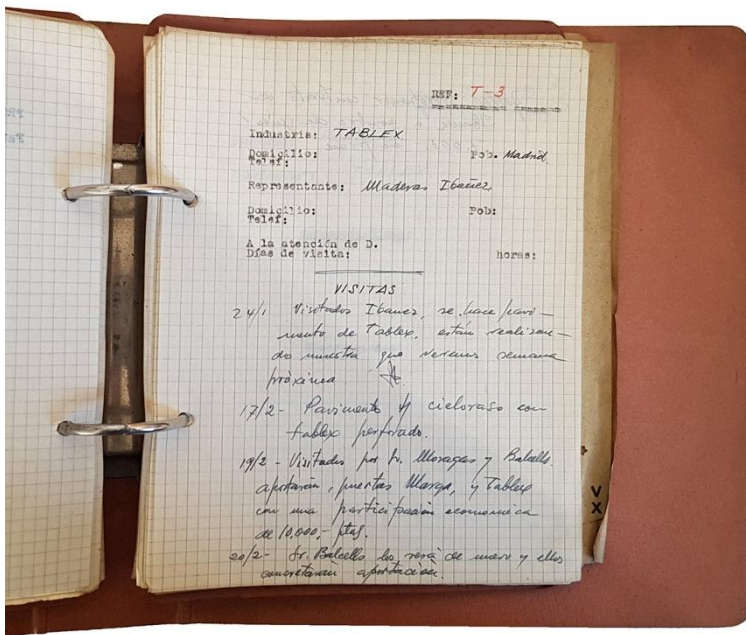 REF: T-3
Industria: TABLEX
Domicilio: Pob. Madrid
Telef:
Representante: Maderas Ibañez
Domicilio: Pob:
Telef:
A la atención de D.
Días de visita: horas:
VISITAS
24/1 Visitados Ibañez, se hace pavi-
mento de Tablex, están realizan-
do muestra que veremos semana
próxima.
17/2- Pavimento y cieloraso con
tablex perforado.
19/2- Visitados por Sr. Moragas y Balcells.
aportarán, puertas Marga, y Tablex
con una participación económica
de 10,000,- ptas.
20/2- Sr. Balcells los verá de nuevo y ellos
concretarán aportación.
V
X